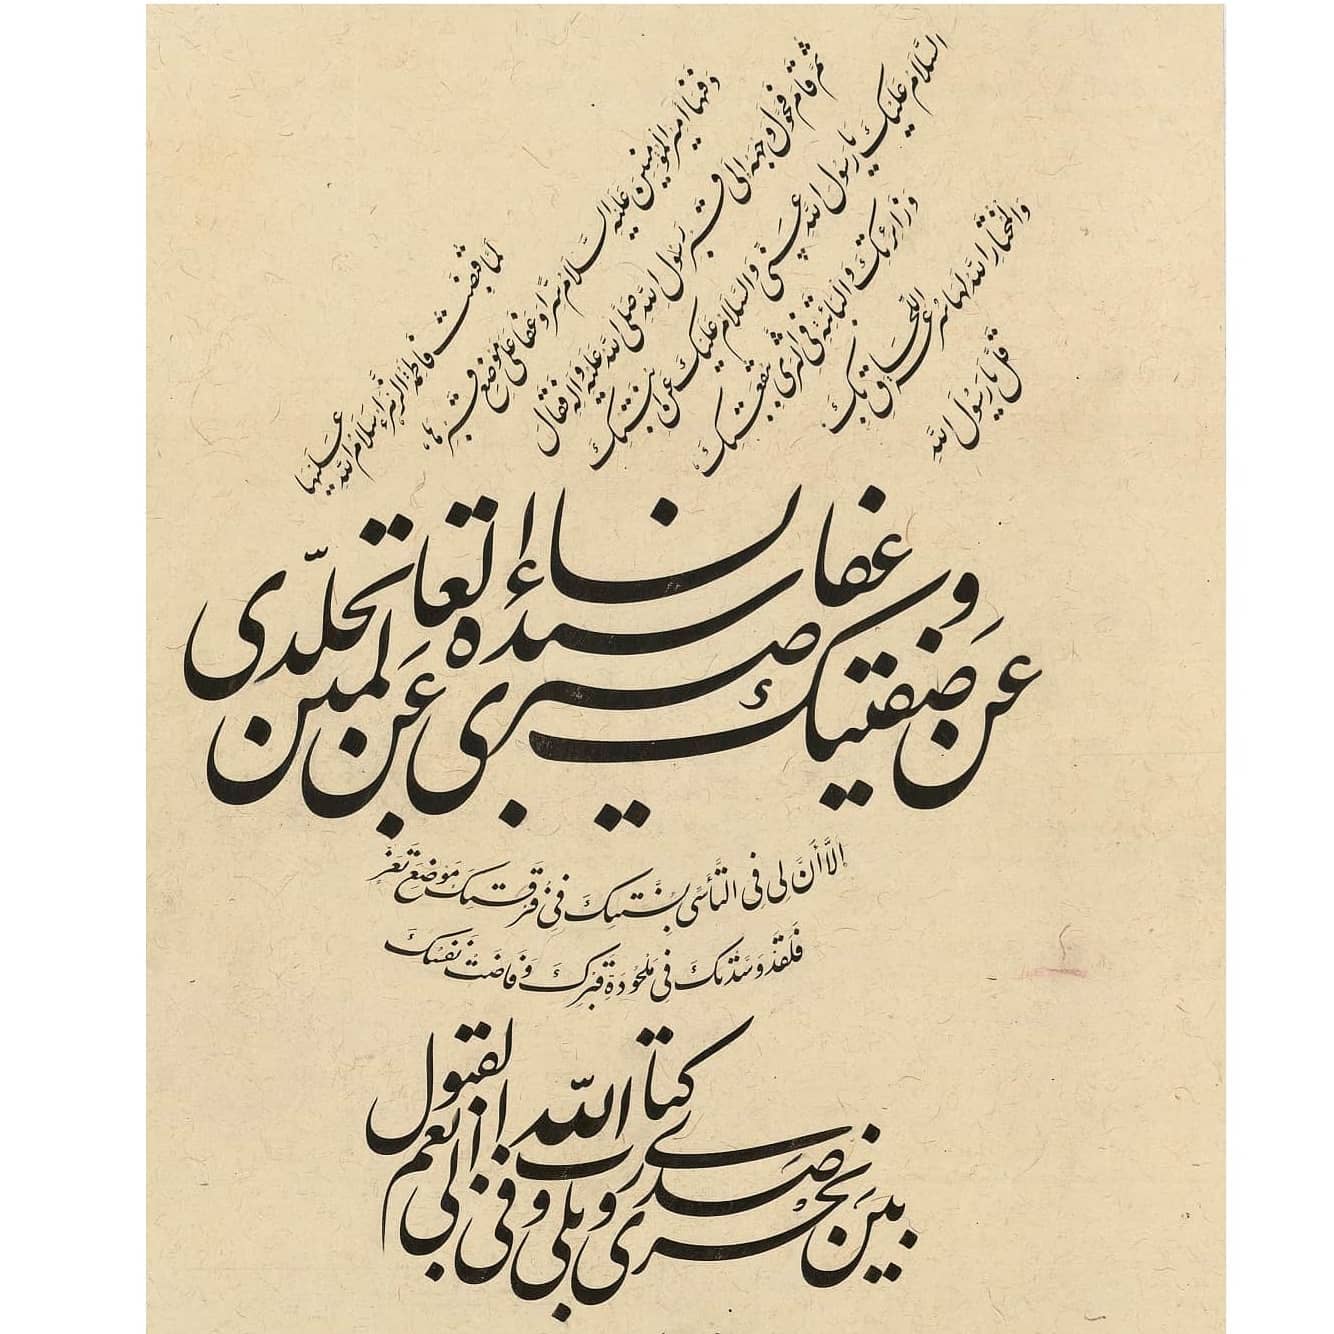 لَمَّا قُبِضَت فاطمة الزهراء سلام الله عَلَیها
دَفَنها امیر المؤمنین عَلَیهِ السَّلام سِرّاً وَ عَفا عَلی مَوضِعِ قبرها
ثُمَّ قامَ فَحَوَّلَ وَجهَه اِلی قَبرِ رَسُول الله صَلَّی اللهُ عَلَیهِ وَ آلِه فَقال
السَّلامُ عَلَیکَ یا رَسُولَ اللهِ عَنّی وَالسَّلامُ عَلَیکَ عَنِ ابنَتِکَ
وَ زائِرَتِکَ وَ البائِتَةِ فِی الثَّری بِبُقعَتِکَ
وَالمُختارِ اللهُ لَها سُرعَةَ اللَّحاقِ بِکَ
قَلَّ یا رَسُولَ الله
عَن صَفِیَّتِکَ صَبری وَ عَفا عَن سَیِّدَةِ نِساءِ العالَمین تَجَلُّدی
اِلّا أَنَّ لِی فِی التَّأَسّی بِسُنَّتِکَ فِی فُرقَتِکَ مَوضِعَ تَعَزٍّ
فَلَقَد وَسَّدتُکَ فِی مَلحُودَةِ قَبرِکَ وَ فاضَت نَفسُکَ
بَینَ نَحری وَ صَدری بلی وَ فی کتاب الله لی انعم القبول